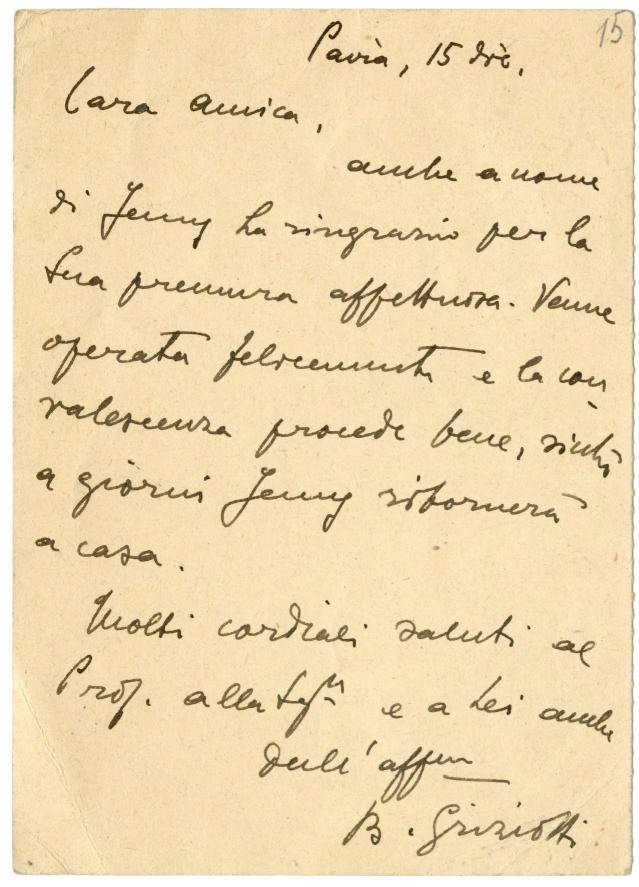 15
Pavia, 15 dic.
Cara amica,
anche a nome
di Jenny La ringrazio per la
Sua premura affettuosa. Venne
operata felicemente e la con
valescenza procede bene, sicchè
a giorni Jenny ritornerà
a casa.
Molti cordiali saluti al
Prof. alla Sig.na e a Lei anche
dell'aff.mo
B. Griziotti